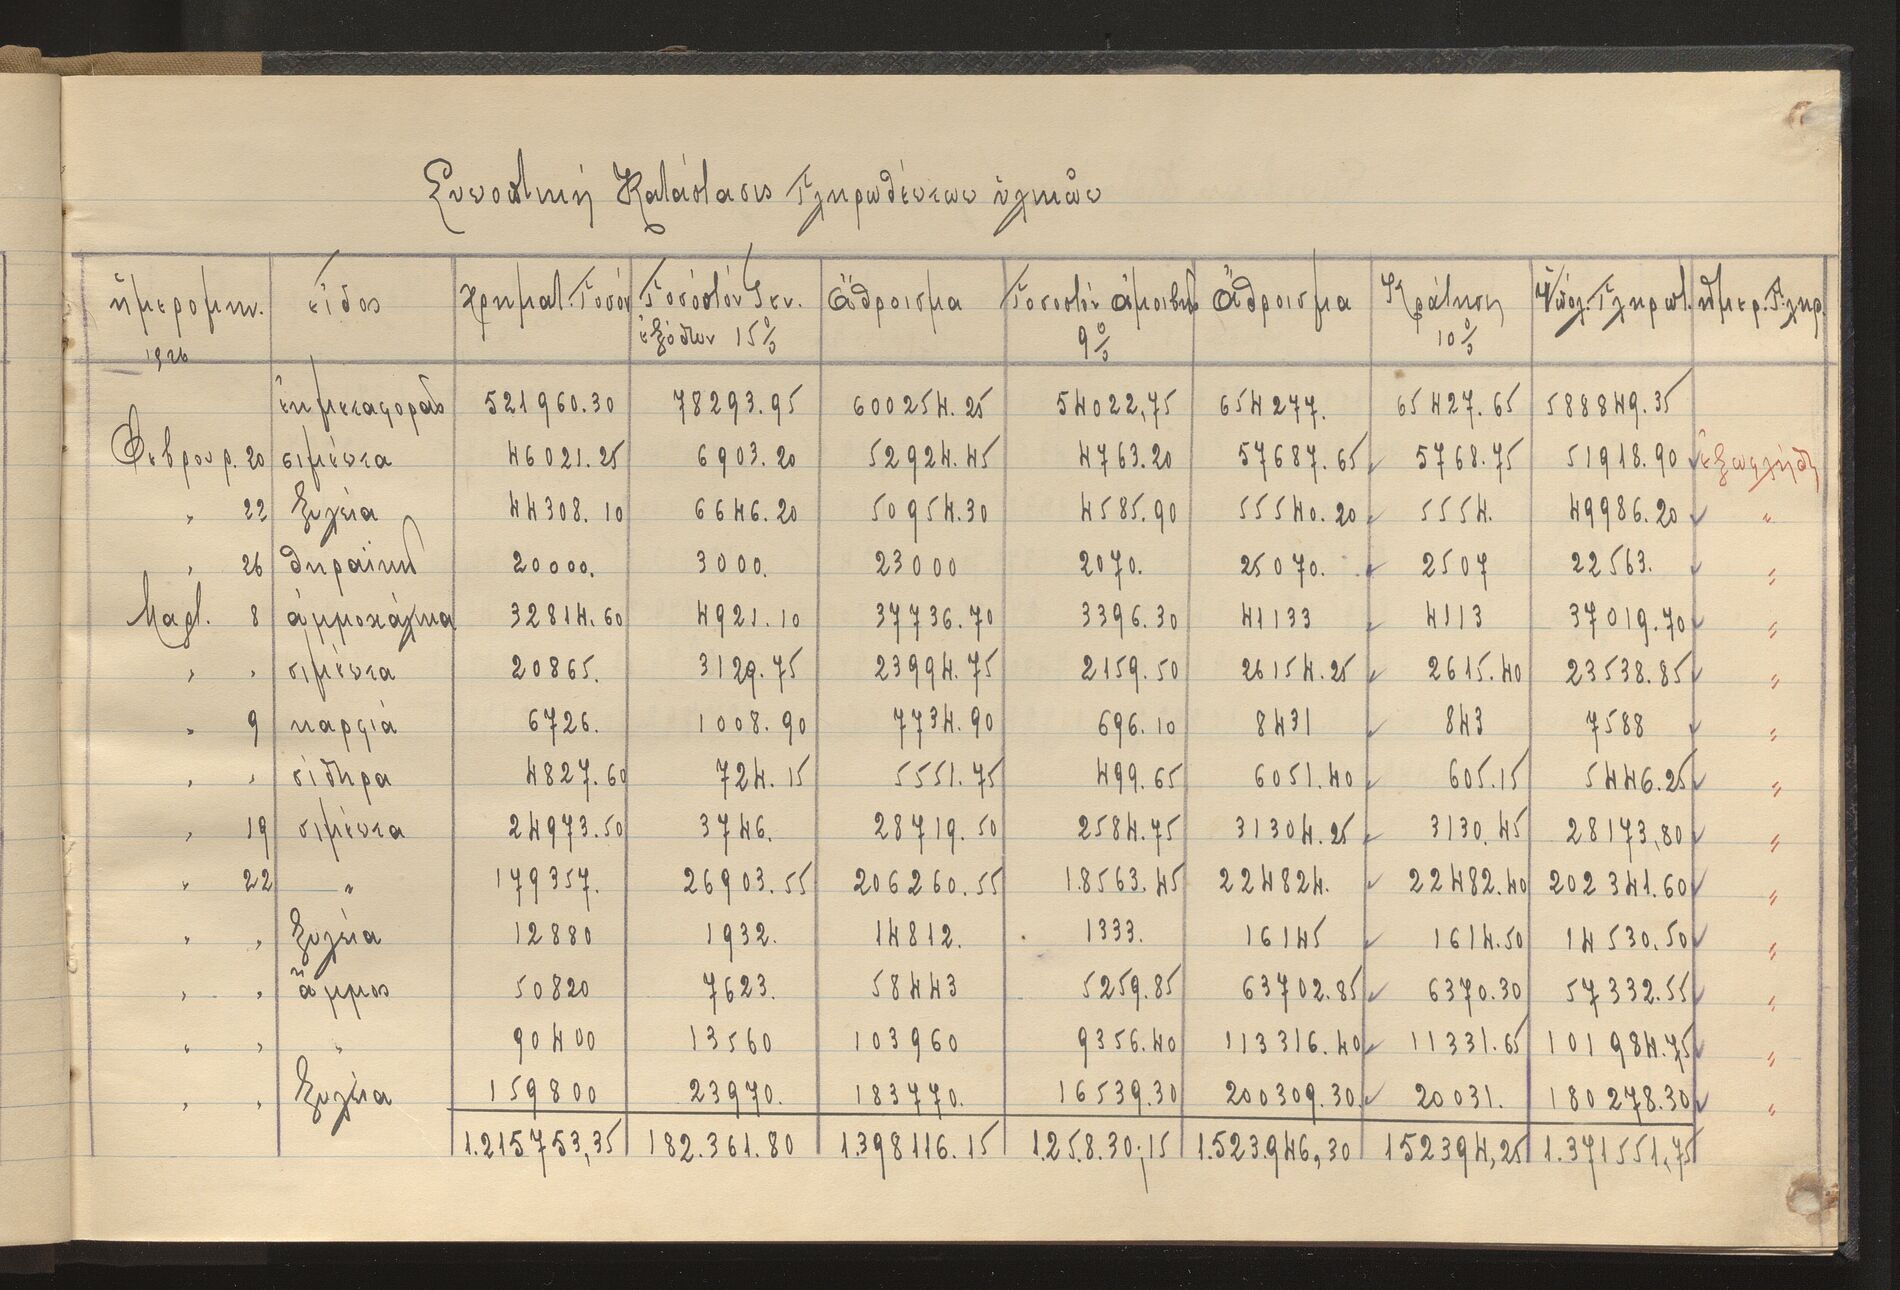 Συνοπτική Κατάστασις Πληρωθέντων ὑλικῶν
ἡμερομην. εἶδος Χρηματ. Ποσόν Ποσοστόν Γεν. Ἄθροισμα Ποσοστόν ἀμοιβῆς Ἄθροισμα Κράτησις Ὑπόλ. Πληρωτ. ἡμερ. Πληρ.
1926 ἐξόδων 15% 9% 10%
ἐκ μεταφορᾶς 521960.30 78293.95 600254.25 54022,75 654277. 65427.65 588849.35
Φεβρουρ. 20 σιμέντα 46021.25 6903.20 52924.45 4763.20 57687.65 ✓ 5768.75 51918.90 ✓ ἐξωφλήθη
„ 22 ξυλεία 44308.10 6646.20 50954.30 4585.90 55540.20 ✓ 5554. 49986.20 ✓ „
„ 26 θηραϊκή 20000. 3000. 23000 2070. 25070. ✓ 2507 22563. ✓ „
Μαρτ. 8 ἀμμοχάλικα 32814.60 4921.10 37736.70 3396.30 41133 ✓ 4113 37019.70 ✓ „
„ „ σιμέντα 20865. 3129.75 23994.75 2159.50 26154.25 ✓ 2615.40 23538.85 ✓ „
„ 9 καρφιά 6726. 1008.90 7734.90 696.10 8431 ✓ 843 7588 ✓ „
„ „ σίδηρα 4827.60 724.15 5551.75 499.65 6051.40 ✓ 605.15 5446.25 ✓ „
„ 19 σιμέντα 24973.50 3746. 28719.50 2584.75 31304.25 ✓ 3130.45 28173,80 ✓ „
„ 22 „ 179357. 26903.55 206260.55 18563.45 224824. ✓ 22482.40 202341.60 ✓ „
„ „ ξυλεία 12880 1932. 14812. 1333. 16145 ✓ 1614.50 14530.50 ✓ „
„ „ ἄμμος 50820 7623. 58443 5259.85 63702.85 ✓ 6370.30 57332.55 ✓ „
„ „ „ 90400 13560 103960 9356.40 113316.40 ✓ 11331.65 101984.75 ✓ „
„ „ ξυλεία 159800 23970. 183770. 16539.30 200309.30 ✓ 20031. 180278.30 ✓ „
1.215753,35 182.361.80 1.398116.15 1.25.8.30,15 1.523.946,30 152394,25 1.371551,75